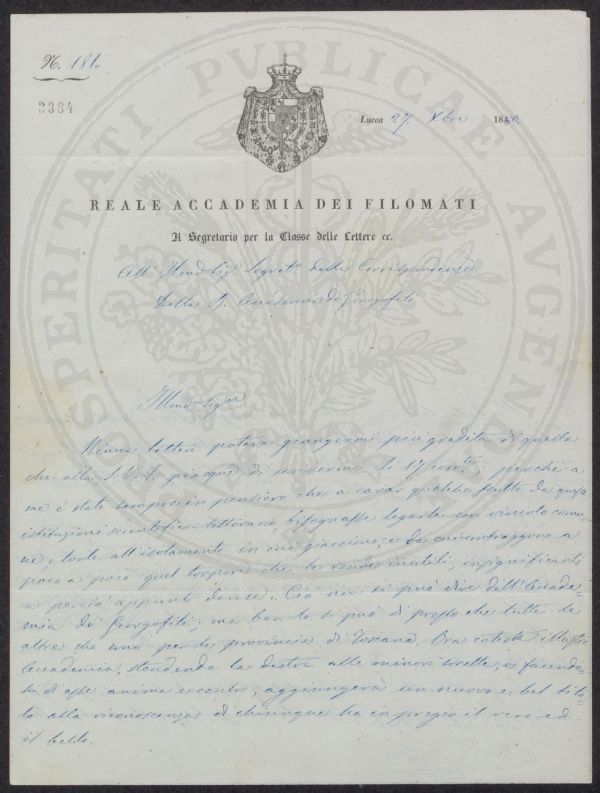 N. 181.
2384
Lucca 27. Xbre 1850.
REALE ACCADEMIA DEI FILOMATI
Il Segretario per la Classe delle Lettere ec.
All' Illmo Sigr Segreto delle Corrispondenze
Della R. Accademia de' Georgofili
Illmo Sigre
Niuna lettera poteva giungermi più gradita di quella
che alla S.V.I. piacque di scrivermi li 17 corrte; perchè a
me è stato sempre in pensiero che a cavar qualche frutto da queste
istituzioni scientifico-letterarie, bisognasse legarle con vincolo comu-
ne e torle all'isolamento in cui giacciono, e da cui contraggono a
poco a poco quel torpore che le rende inutili, insignificanti
e perciò appunto derise. Ciò non si può dire dell'Accade-
mia de' Georgofili; ma ben lo si può di presso che tutte le
altre che sono per le provincie di Toscana. Ora cotesta illustre
Accademia, stendendo la destra alle minori sorelle, e facendo-
si di esse anima e centro, aggiungerà un nuovo e bel tito-
lo alla riconoscenza di chiunque ha in pregio il vero ed
il bello.
PROSPERITATI PVBLICAE AVGENDAE